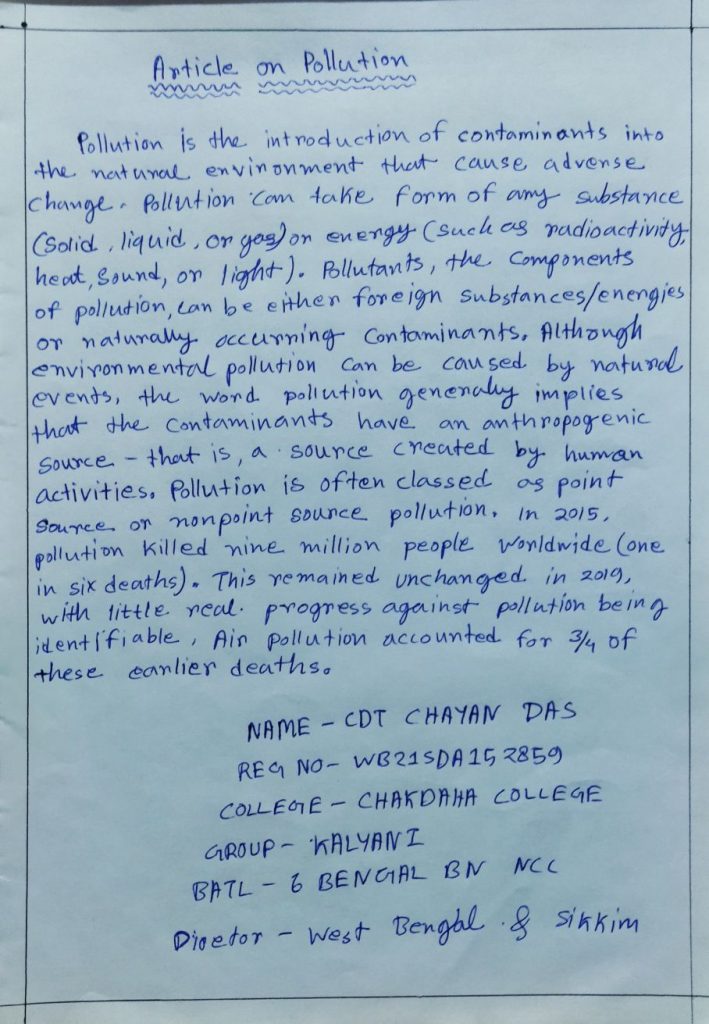 Article on Pollution
Pollution is the introduction of contaminants into
the natural environment that cause adverse
change. Pollution can take form of any substance
(solid, liquid, or gas) or energy (such as radioactivity,
heat, sound, or light). Pollutants, the components
of pollution, can be either foreign substances/energies
or naturally occurring contaminants. Although
environmental pollution can be caused by natural
events, the word pollution generally implies
that the contaminants have an anthropogenic
source - that is, a source created by human
activities. Pollution is often classed as point
source or nonpoint source pollution. In 2015,
pollution killed nine million people worldwide (one
in six deaths). This remained unchanged in 2019,
with little real progress against pollution being
identifiable, Air pollution accounted for 3/4 of
these earlier deaths.
NAME - CDT CHAYAN DAS
REG NO - WB21SDA152859
COLLEGE - CHAKDAHA COLLEGE
GROUP - KALYANI
BATL - 6 BENGAL BN NCC
Director - West Bengal & Sikkim